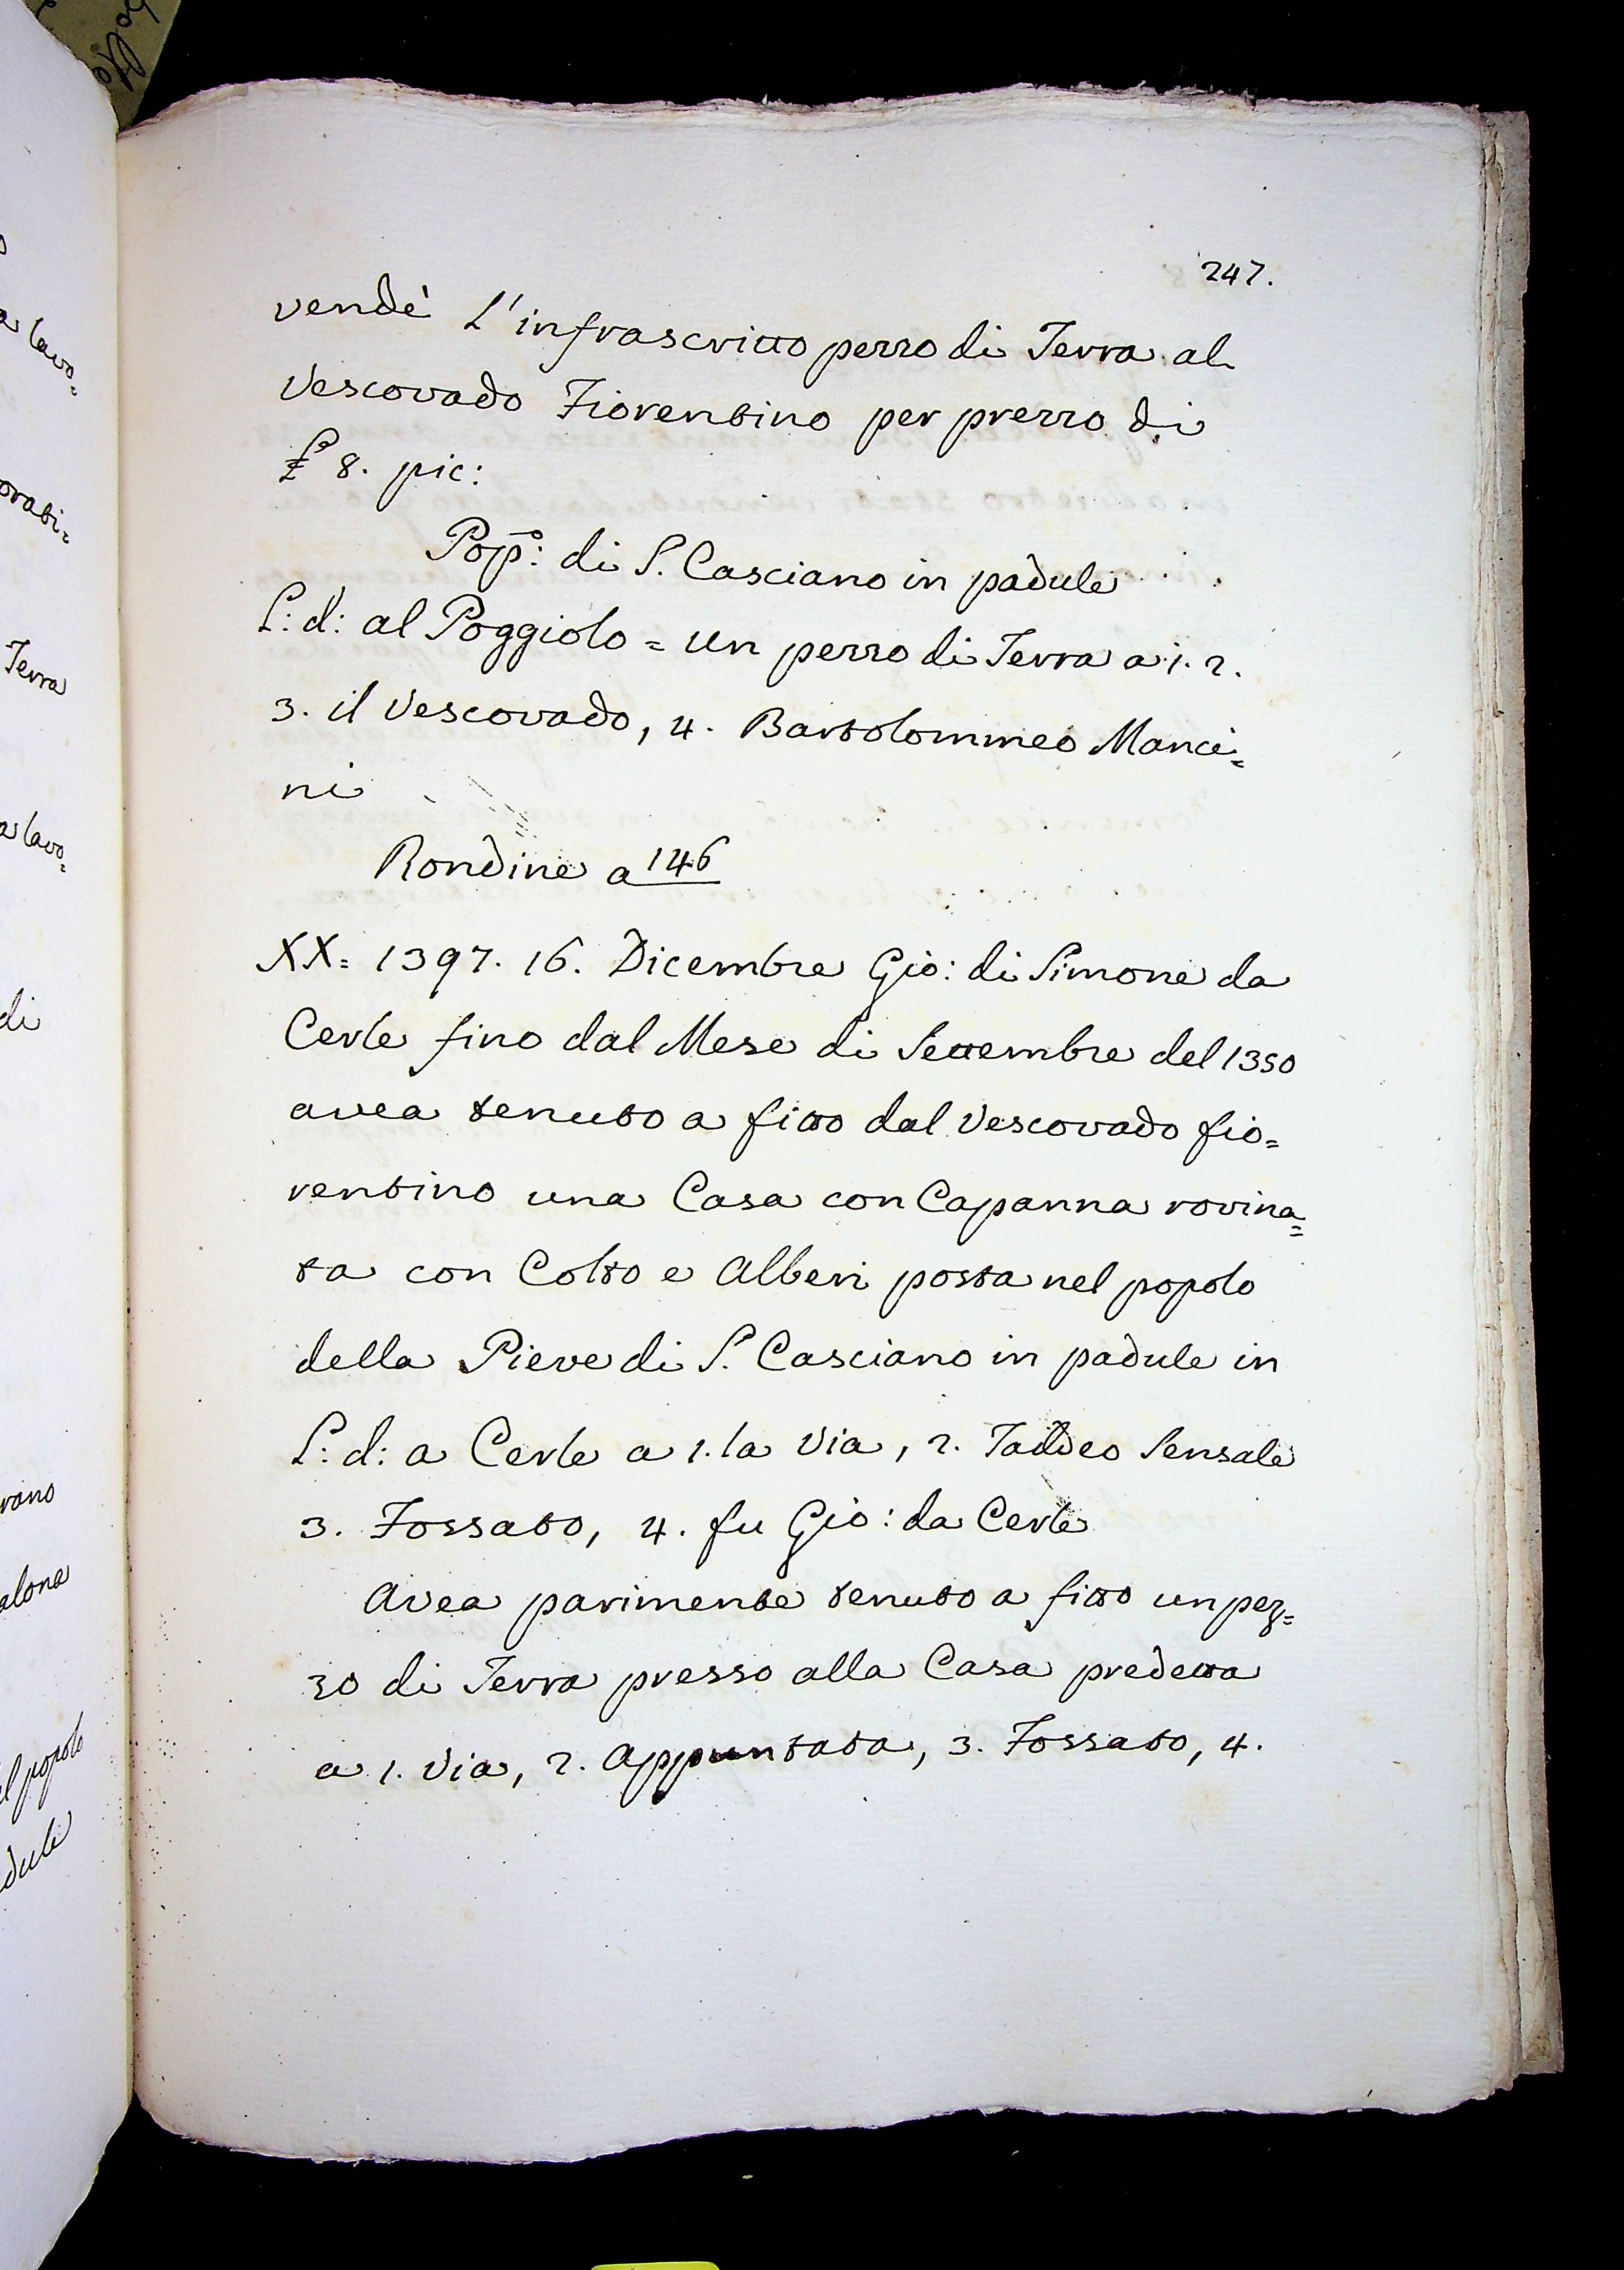 247.
vendè l'infrascritto pezzo di Terra al
Vescovado Fiorentino per prezzo di
£ 8. pic:
Pop.º: di S. Casciano in padule
L: d: al Poggiolo = un pezzo di Terra a 1. 2.
3. il Vescovado, 4. Bartolommeo Manci=
ni
Rondine a 146
XX= 1397. 16. Dicembre Gio: di Simone da
Cerle fino dal Mese di Settembre del 1350
avea tenuto a fitto dal Vescovado fio=
rentino una Casa con Capanna rovina=
ta con Colto e Alberi posta nel popolo
della Pieve di S. Casciano in padule in
L: d: a Cerle a 1. la Via, 2. Taddeo Sensale
3. Fossato, 4. fu Gio: da Cerle
Avea parimente tenuto a fitto un pez=
zo di Terra presso alla Casa predetta
a 1. Via, 2. Appuntata, 3. Fossato, 4.
a lavo=
orati=
Terra
a lavo=
di
rono
alona
l popolo
dule